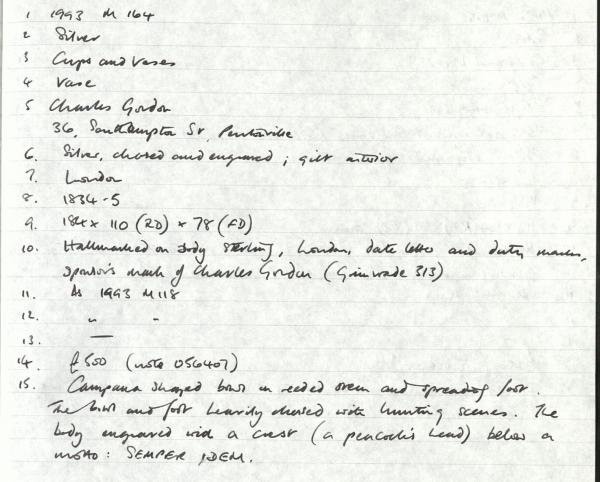 1 1993 M 164
2 Silver
3 Cups and Vases
4 Vase
5 Charles Gordon
36, Southampton St, Pentonville
6. Silver, chased and engraved; gilt interior
7. London
8. 1834-5
9. 184 x 110 (RD) x 78 (FD)
10. Hallmarked on body sterling, London, date letter and duty marks,
sponsor's mark of Charles Gordon (Grimwade 313)
11. As 1993 M118
12. " "
13. —
14. £500 (note 056407)
15. Campana shaped bowl on reeded stem and spreading foot.
The bowl and foot heavily chased with hunting scenes. The
body engraved with a crest (a peacock's head) below a
motto: SEMPER IDEM.